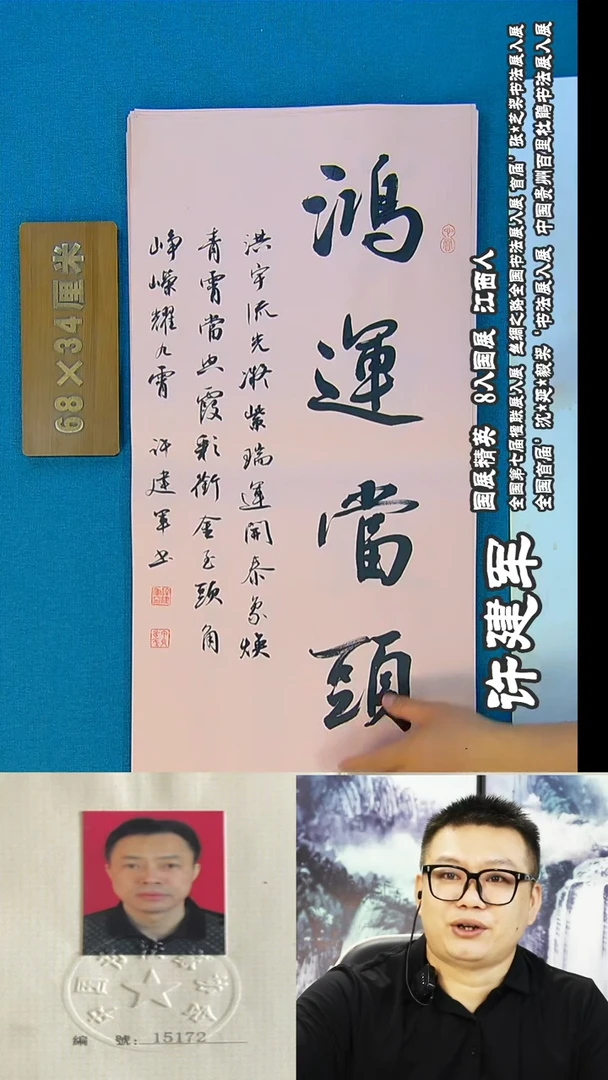 鴻運當頭
洪宇流光凝紫瑞運開泰象煥
青霄當空霞彩銜金至頭角
崢嶸耀九霄 许建军书
68×34厘米
许建军
国展精英 8入国展 江西人
全国第七届楹联展入展 丝绸之路全国书法展入展 首届’张*芝奖书法展入展
全国首届’沈*延*毅奖‘书法展入展 中国贵州百里杜鹃书法展入展
編 號: 15172